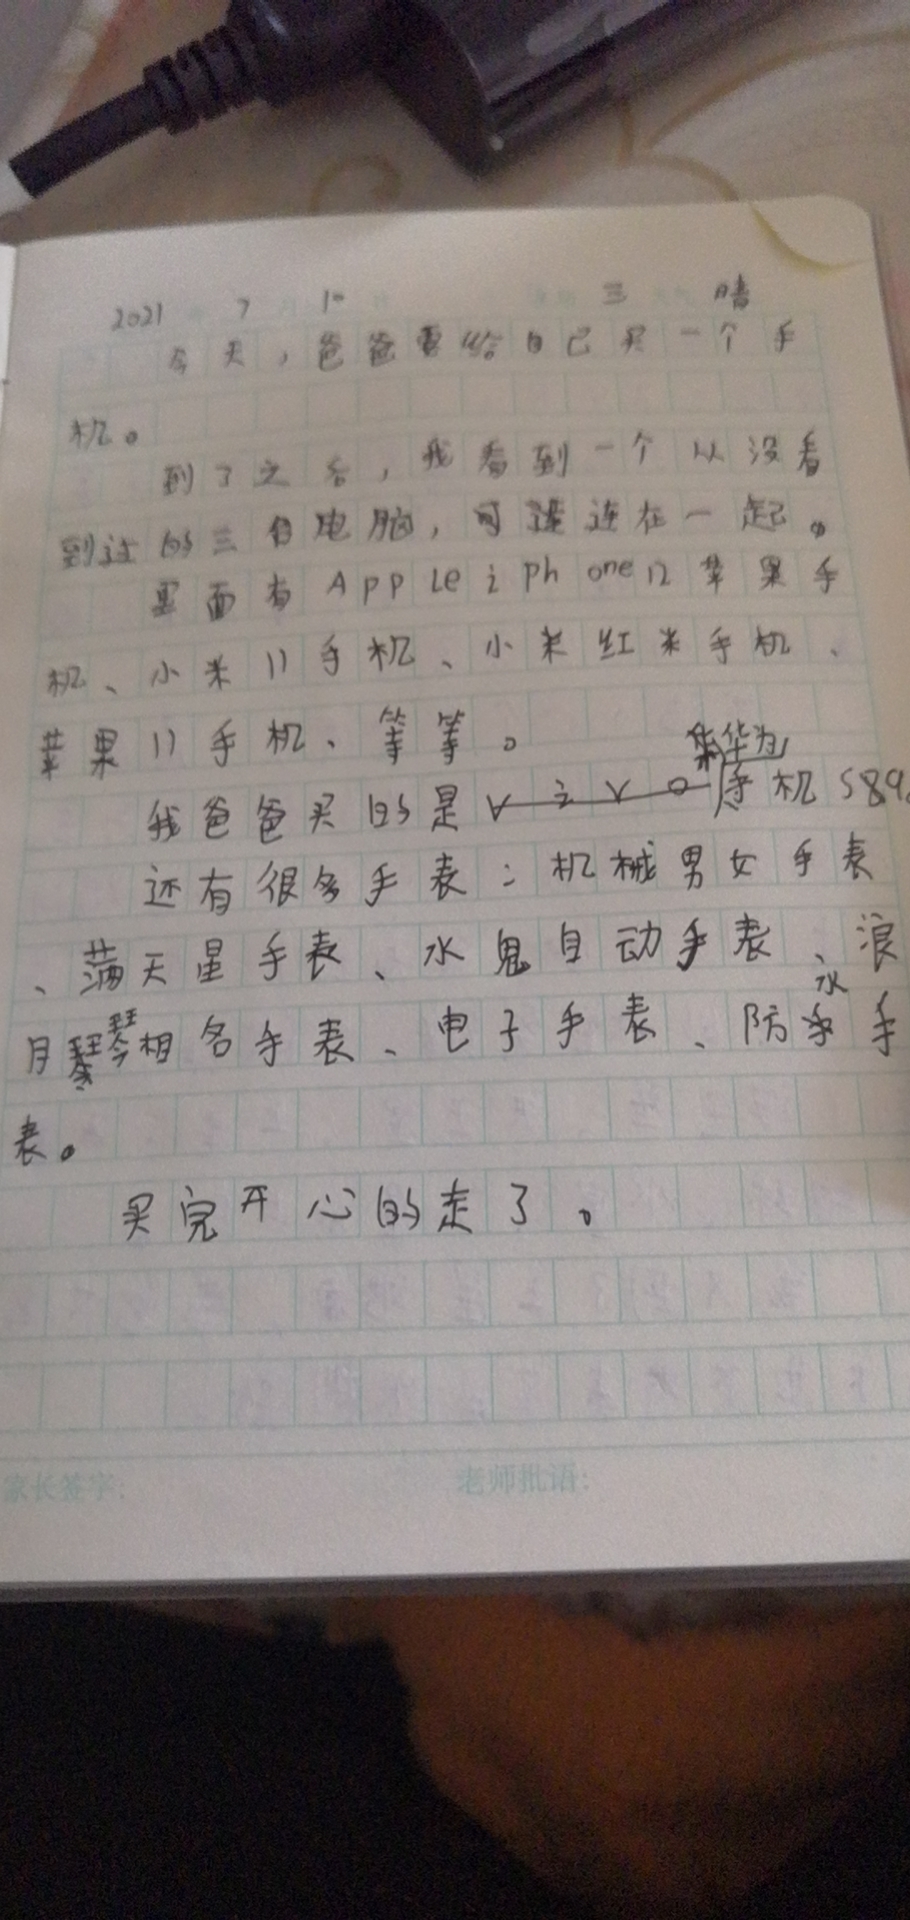 2021 7 10 三 晴
今天，爸爸要给自己买一个手
机。
到了之后，我看到一个从没看
到过的三台电脑，可连在一起。
里面有AppLe iphone12苹果手
机、小米11手机、小米红米手机、
苹果11手机、等等。
华为
我爸爸买的是vivo手机S89
还有很多手表：机械男女手表
、满天星手表、水鬼自动手表、浪
水
月琴相名手表、电子手表、防手
表。
买完开心的走了。
家长签字： 老师批语：